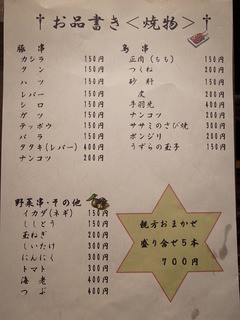 お品書き<焼物>
豚串
カシラ 150円
タン 150円
ハツ 150円
レバー 150円
シロ 150円
ガツ 150円
テッポウ 150円
バラ 150円
タタキ(レバー) 400円
ナンコツ 200円
鳥串
正肉(もも) 150円
つくね 200円
砂肝 150円
皮 200円
手羽先 400円
ナンコツ 200円
ササミのさび焼 300円
ボンジリ 200円
うずらの玉子 150円
野菜串・その他
イカダ(ネギ) 150円
ししとう 150円
玉ねぎ 200円
しいたけ 300円
にんにく 300円
トマト 300円
海老 400円
つぶ 400円
親方おまかせ
盛り合せ5本
700円